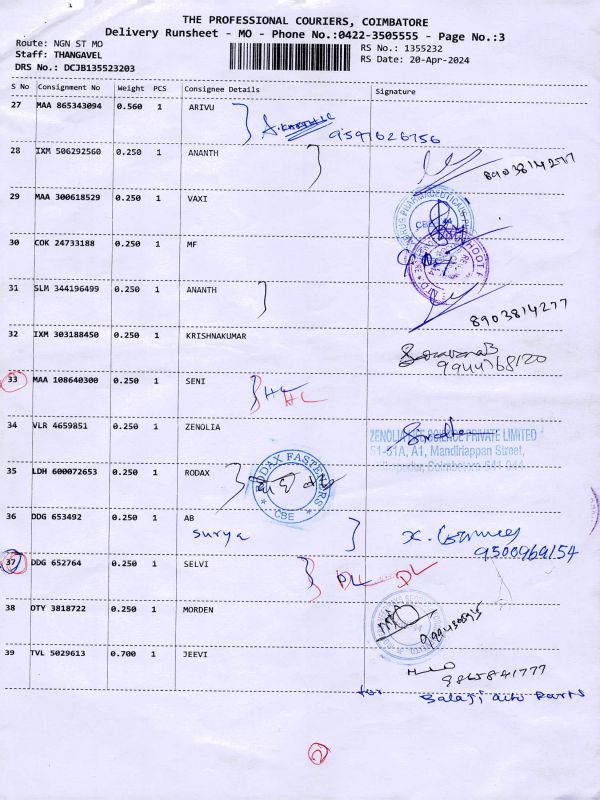 THE PROFESSIONAL COURIERS, COIMBATORE
Delivery Runsheet - MO - Phone No.:0422-3505555 - Page No.:3
Route: NGN ST MO
RS No.: 1355232
Staff: THANGAVEL
RS Date: 20-Apr-2024
DRS No.: DCJB135523203
S No Consignment No Weight PCS Consignee Details Signature
27 MAA 865343094 0.560 1 ARIVU
9597626756
28 IXM 506292560 0.250 1 ANANTH
8903814277
29 MAA 300618529 0.250 1 VAXI
30 COK 24733188 0.250 1 MF
31 SLM 344196499 0.250 1 ANANTH
8903814277
32 IXM 303188450 0.250 1 KRISHNAKUMAR
9944768120
33 MAA 108640300 0.250 1 SENI
HL
34 VLR 4659851 0.250 1 ZENOLIA
ZENOLIA LIFE SCIENCE PRIVATE LIMITED
51-51A, A1, Mandiriappan Street,
Coimbatore-641 044
35 LDH 600072653 0.250 1 RODAX
RODAX FASTENERS
CBE
36 DDG 653492 0.250 1 AB
Surya
9500969154
37 DDG 652764 0.250 1 SELVI
DL DL
38 OTY 3818722 0.250 1 MORDEN
39 TVL 5029613 0.700 1 JEEVI
9865841777
for Balaji auto Parts